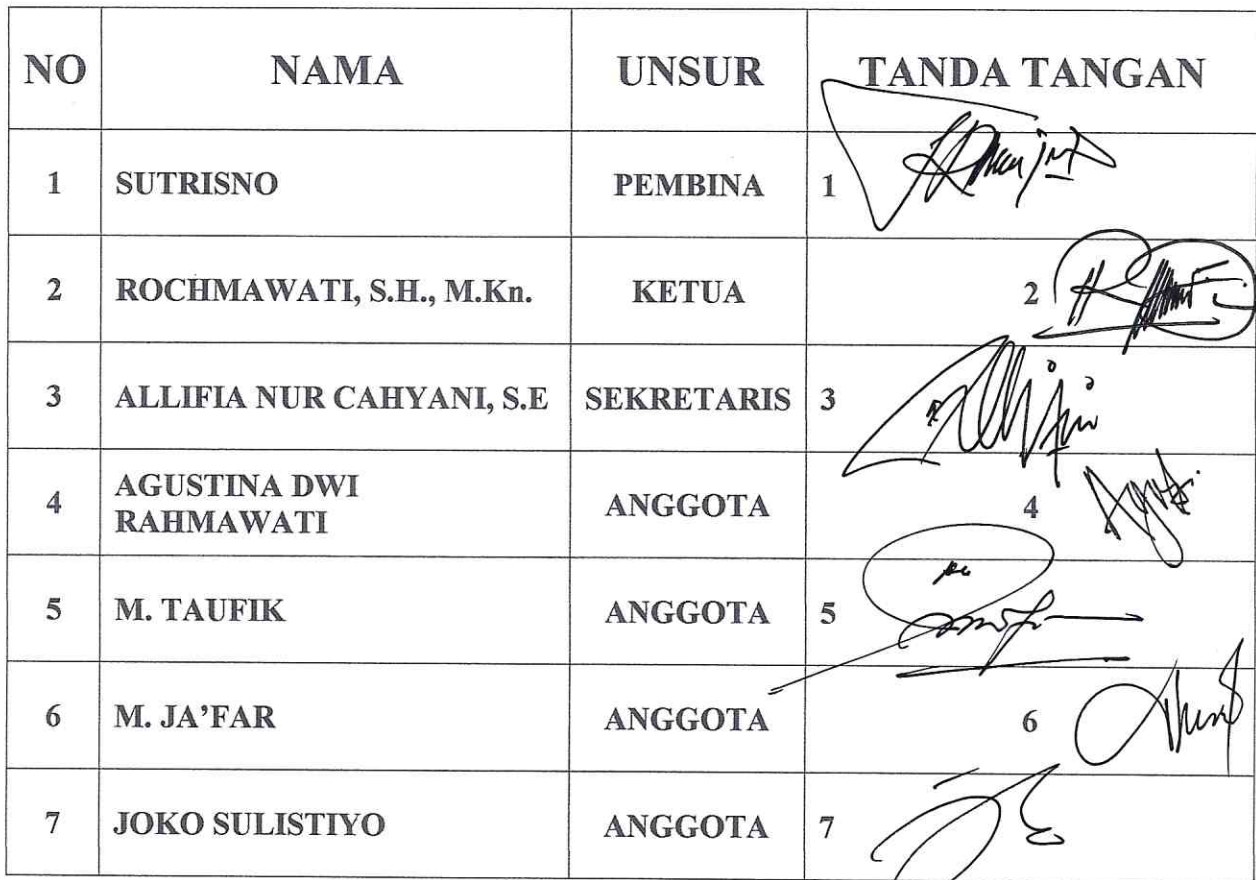 NO NAMA UNSUR TANDA TANGAN
1 SUTRISNO PEMBINA 1
2 ROCHMAWATI, S.H., M.Kn. KETUA 2
3 ALLIFIA NUR CAHYANI, S.E SEKRETARIS 3
AGUSTINA DWI
4 RAHMAWATI ANGGOTA 4
5 M. TAUFIK ANGGOTA 5
6 M. JA'FAR ANGGOTA 6
7 JOKO SULISTIYO ANGGOTA 7